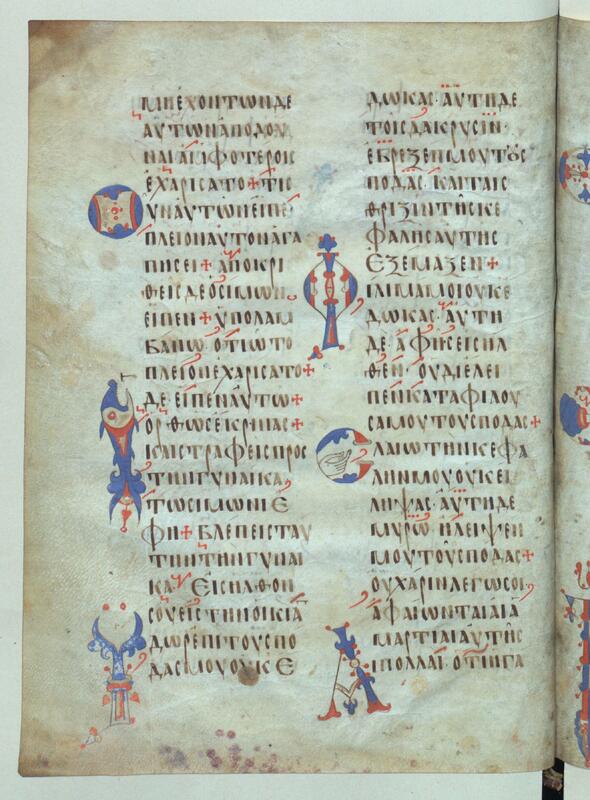 ΜΗ ΕΧΟΝΤΩΝΔΕ
ΑΥΤΩΝΑΠΟΔΟΥ
ΝΑΙ ΑΜΦΟΤΕΡΟΙC
ΕΧΑΡΙCΑΤΟ+ΤΙC
ΟΥΝΑΥΤΩΝΕΙΠΕ
ΠΛΕΙΟΝΑΥΤΟΝΑΓΑ
ΠΗCΕΙ+ΑΠΟΚΡΙ
ΘΕΙCΔΕΟCΙΜΩΝ
ΕΙΠΕΝ+ΥΠΟΛΑΜ
ΒΑΝΩ·ΟΤΙΩΤΟ
ΠΛΕΙΟΝΕΧΑΡΙCΑΤΟ+
ΟΔΕΕΙΠΕΝΑΥΤΩ+
ΟΡΘΩCΕΚΡΙΝΑC+
ΚΑΙCΤΡΑΦΕΙCΠΡΟC
ΤΗΝΓΥΝΑΙΚΑ
ΤΩCΙΜΩΝΙΕ
ΦΗ+ΒΛΕΠΕΙCΤΑΥ
ΤΗΝΤΗΝΓΥΝΑΙ
ΚΑ· ΕΙCΗΛΘΟΝ
CΟΥΕΙCΤΗΝΟΙΚΙΑ
ΥΔΩΡΕΠΙΤΟΥCΠΟ
ΔΑCΜΟΥΟΥΚΕ
ΔΩΚΑC·ΑΥΤΗΔΕ
ΤΟΙCΔΑΚΡΥCΙΝ·
ΕΒΡΕΞΕΝΜΟΥΤΟΥC
ΠΟΔΑC·ΚΑΙΤΑΙC
ΘΡΙΞΙΝΤΗCΚΕ
ΦΑΛΗCΑΥΤΗC
ΕΞΕΜΑΞΕΝ+
ΦΙΛΗΜΑΜΟΙΟΥΚΕ
ΔΩΚΑC·ΑΥΤΗ
ΔΕ·ΑΦΗCΕΙCΗΛ
ΘΕΝ·ΟΥΔΙΕΛΕΙ
ΠΕΝΚΑΤΑΦΙΛΟΥ
CΑΜΟΥΤΟΥCΠΟΔΑC+
ΕΛΑΙΩΤΗΝΚΕΦΑ
ΛΗΝΜΟΥΟΥΚΕΙ
ΛΗΨΑC·ΑΥΤΗΔΕ
ΜΥΡΩ·ΗΛΕΙΨΕΝ
ΜΟΥΤΟΥCΠΟΔΑC+
ΟΥΧΑΡΙΝΛΕΓΩCΟΙ
ΑΦΑΙΩΝΤΑΙΑΙΑ
ΜΑΡΤΙΑΙΑΥΤΗC
ΑΙΠΟΛΛΑΙ·ΟΤΙΗΓΑ